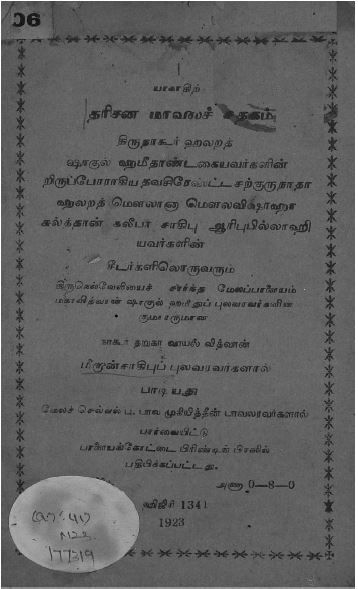 06
யாகாதிற்
தரிசன மாலைச் சதகம்
திருநாகூர் ஹலறத்
ஷாகுல் ஹமீதாண்டகையவர்களின்
றிருப்போராகிய தவசிரேஷ்ட சற்குருநாதா
ஹலறத் மௌலானா மௌலவிஷாஹா
சுல்த்தான் கலீபா சாகிபு ஆரிபுபில்லாஹி
யவர்களின்
சீடர்களிலொருவரும்
திருநெல்வேலியைச் சார்ந்த மேலப்பாளையம்
மகாவித்வான் ஷாகுல் ஹமீதுப் புலவரவர்களின்
குமாரருமான
நாகூர் தறுகா வாயலீ வித்வான்
மீறான்சாகிபுப் புலவரவர்களால்
பாடியது
மேலச் செவ்வல் ப. பாவ முகியித்தீன் பாவலரவர்களால்
பார்வையிட்டு
பாளையங்கோட்டை பிரிண்டிங் பிரஸில்
பதிபிக்கப்பட்டது.
அணா 0—8—0
ஹிஜிரி 1341
1923
177319